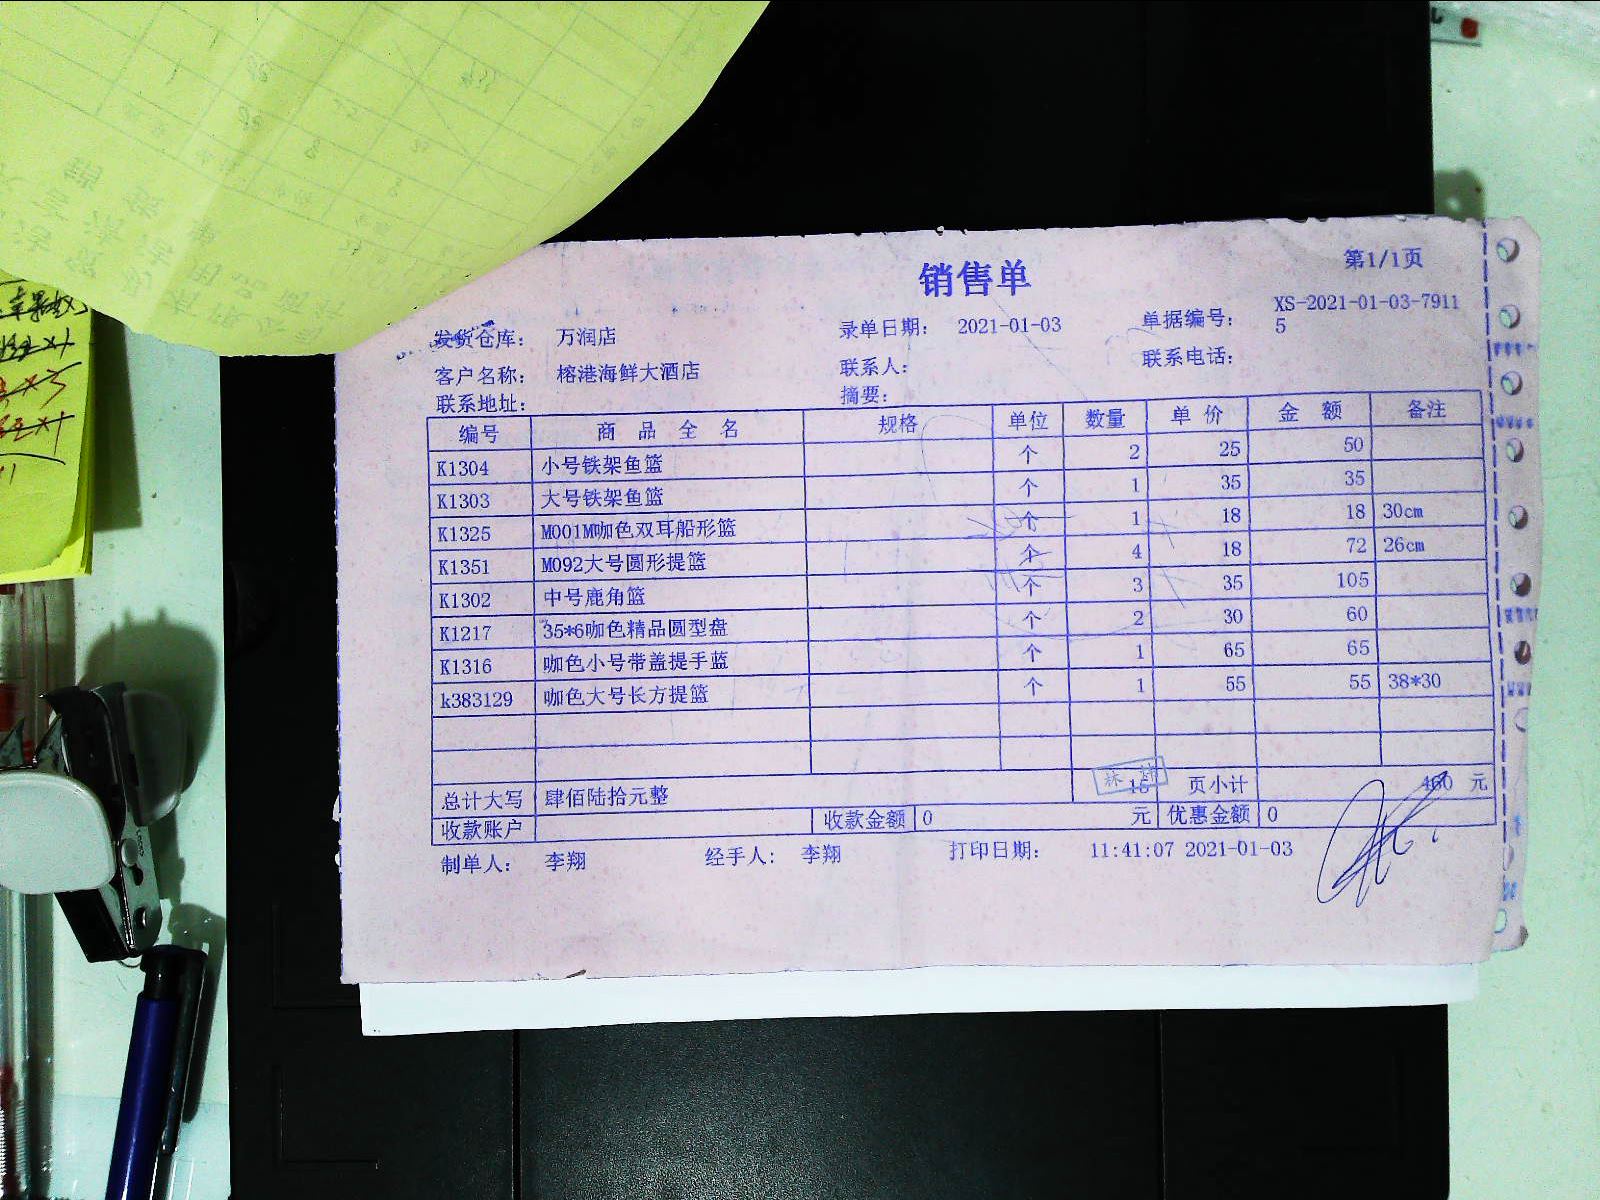 销售单
第1/1页
发货仓库: 万润店 录单日期: 2021-01-03 单据编号: XS-2021-01-03-7911
5
客户名称: 榕港海鲜大酒店 联系人: 联系电话:
联系地址: 摘要:
编号 商品全名 规格 单位 数量 单价 金额 备注
K1304 小号铁架鱼篮 个 2 25 50
K1303 大号铁架鱼篮 个 1 35 35
K1325 M001M咖色双耳船形篮 个 1 18 18 30cm
K1351 M092大号圆形提篮 个 4 18 72 26cm
K1302 中号鹿角篮 个 3 35 105
K1217 35*6咖色精品圆型盘 个 2 30 60
K1316 咖色小号带盖提手蓝 个 1 65 65
k383129 咖色大号长方提篮 个 1 55 55 38*30
总计大写 肆佰陆拾元整 15 页小计 460 元
收款账户 收款金额 0 元 优惠金额 0
制单人: 李翔 经手人: 李翔 打印日期: 11:41:07 2021-01-03